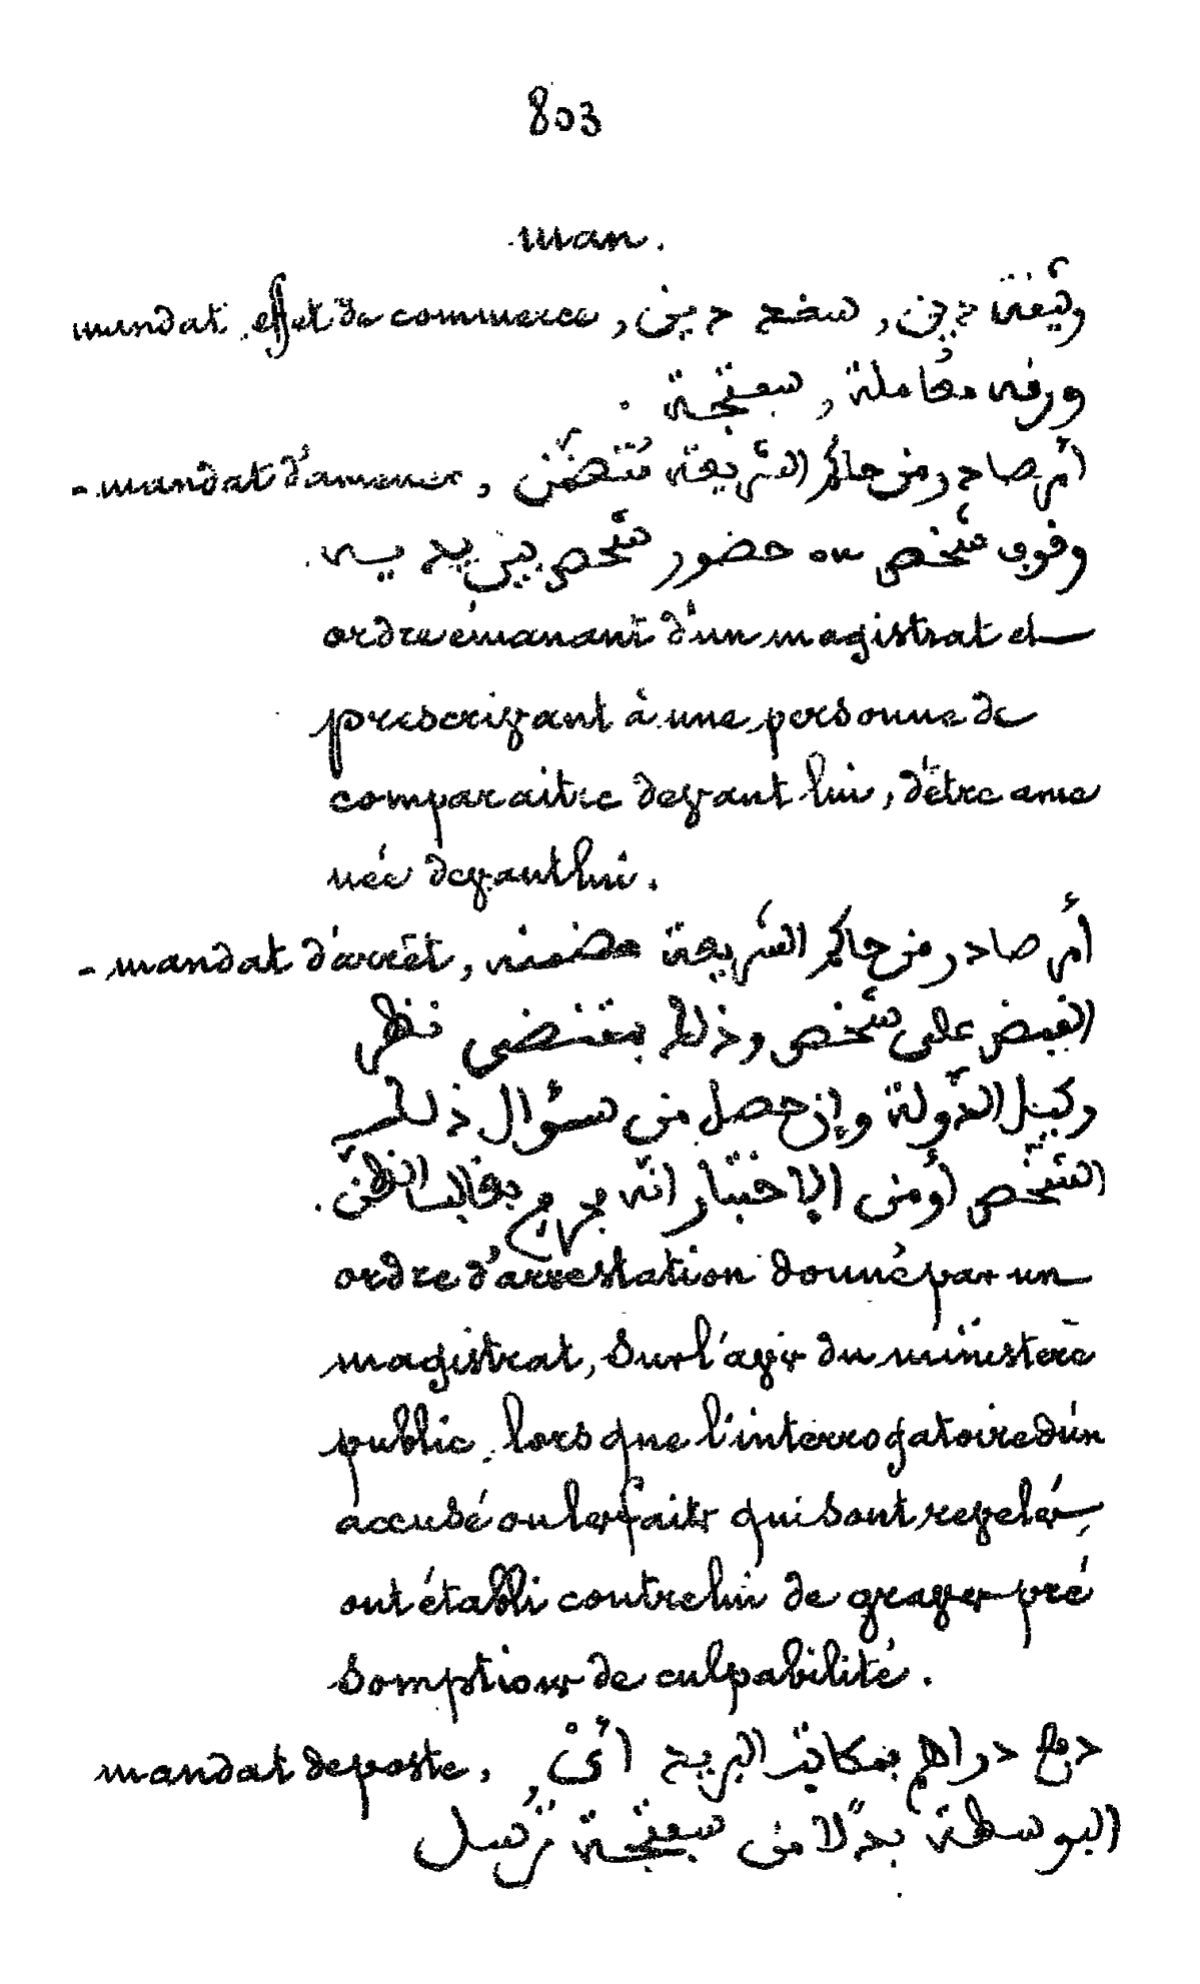 803
man.
mandat, effet de commerce, وثيقة دين, سفح دين,
ورقة معاملة, سفتجة.
- mandat d'amener, أمر صادر من حاكم الشريعة متضمّن
وقوف شخص ou حضور شخص بين يديه.
ordre émanant d'un magistrat et
prescrivant à une personne de
comparaitre devant lui, d'être ame
née devant lui.
- mandat d'arrêt, أمر صادر من حاكم الشريعة مضمنه
القبض على شخص وذلك بمقتضى نظر
وكيل الدّولة وإن حصل من سؤال ذلك
الشّخص أو من الاختبار انّه مجرم بغالب الظنّ.
ordre d'arrestation donné par un
magistrat, sur l'avis du ministère
public, lorsque l'interrogatoire d'un
accusé ou les faits qui sont revelés,
ont établi contre lui de graves pré
somptions de culpabilité.
mandat de poste, دفع دراهم بمكاتب البريد أيْ
البوسطة بدلًا من سفتجة ترسل